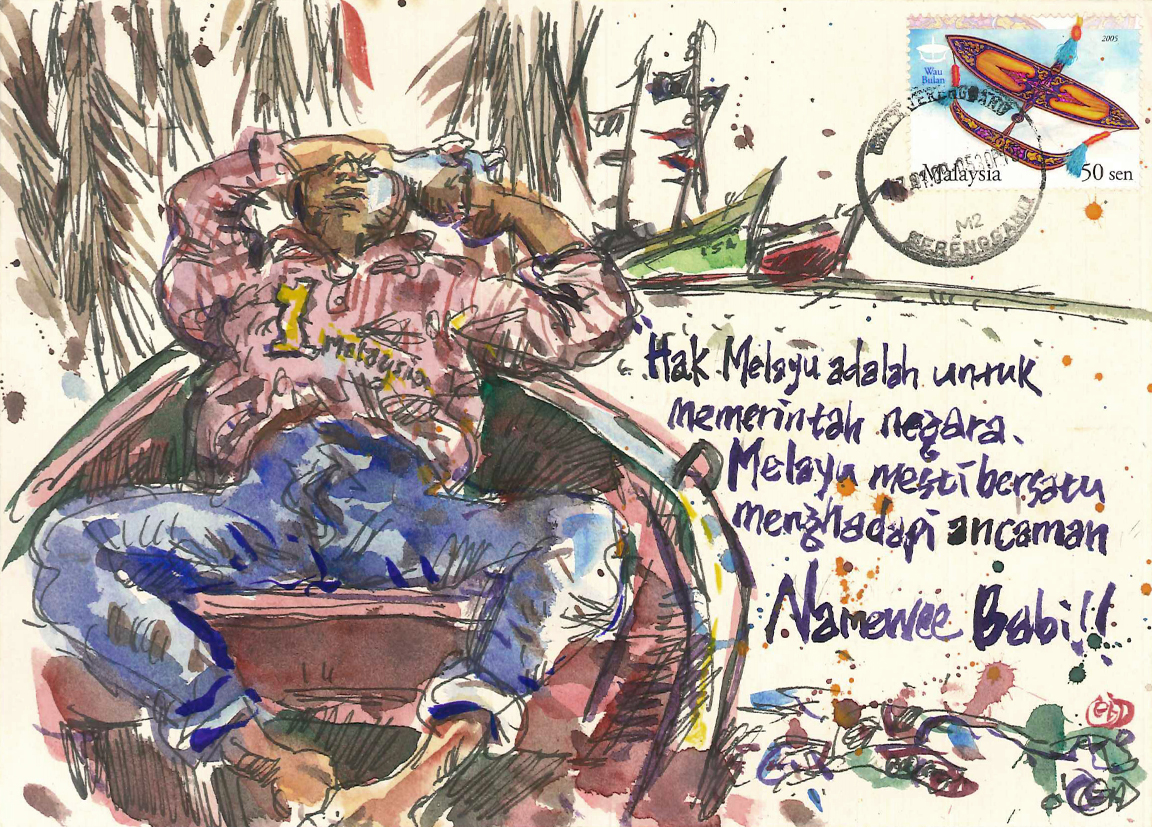 2005
Wau
Bulan
Malaysia
50 sen
M2
1 Malaysia
Hak Melayu adalah untuk
memerintah negara.
Melayu mesti bersatu
menghadapi ancaman
Namewee Babi!!